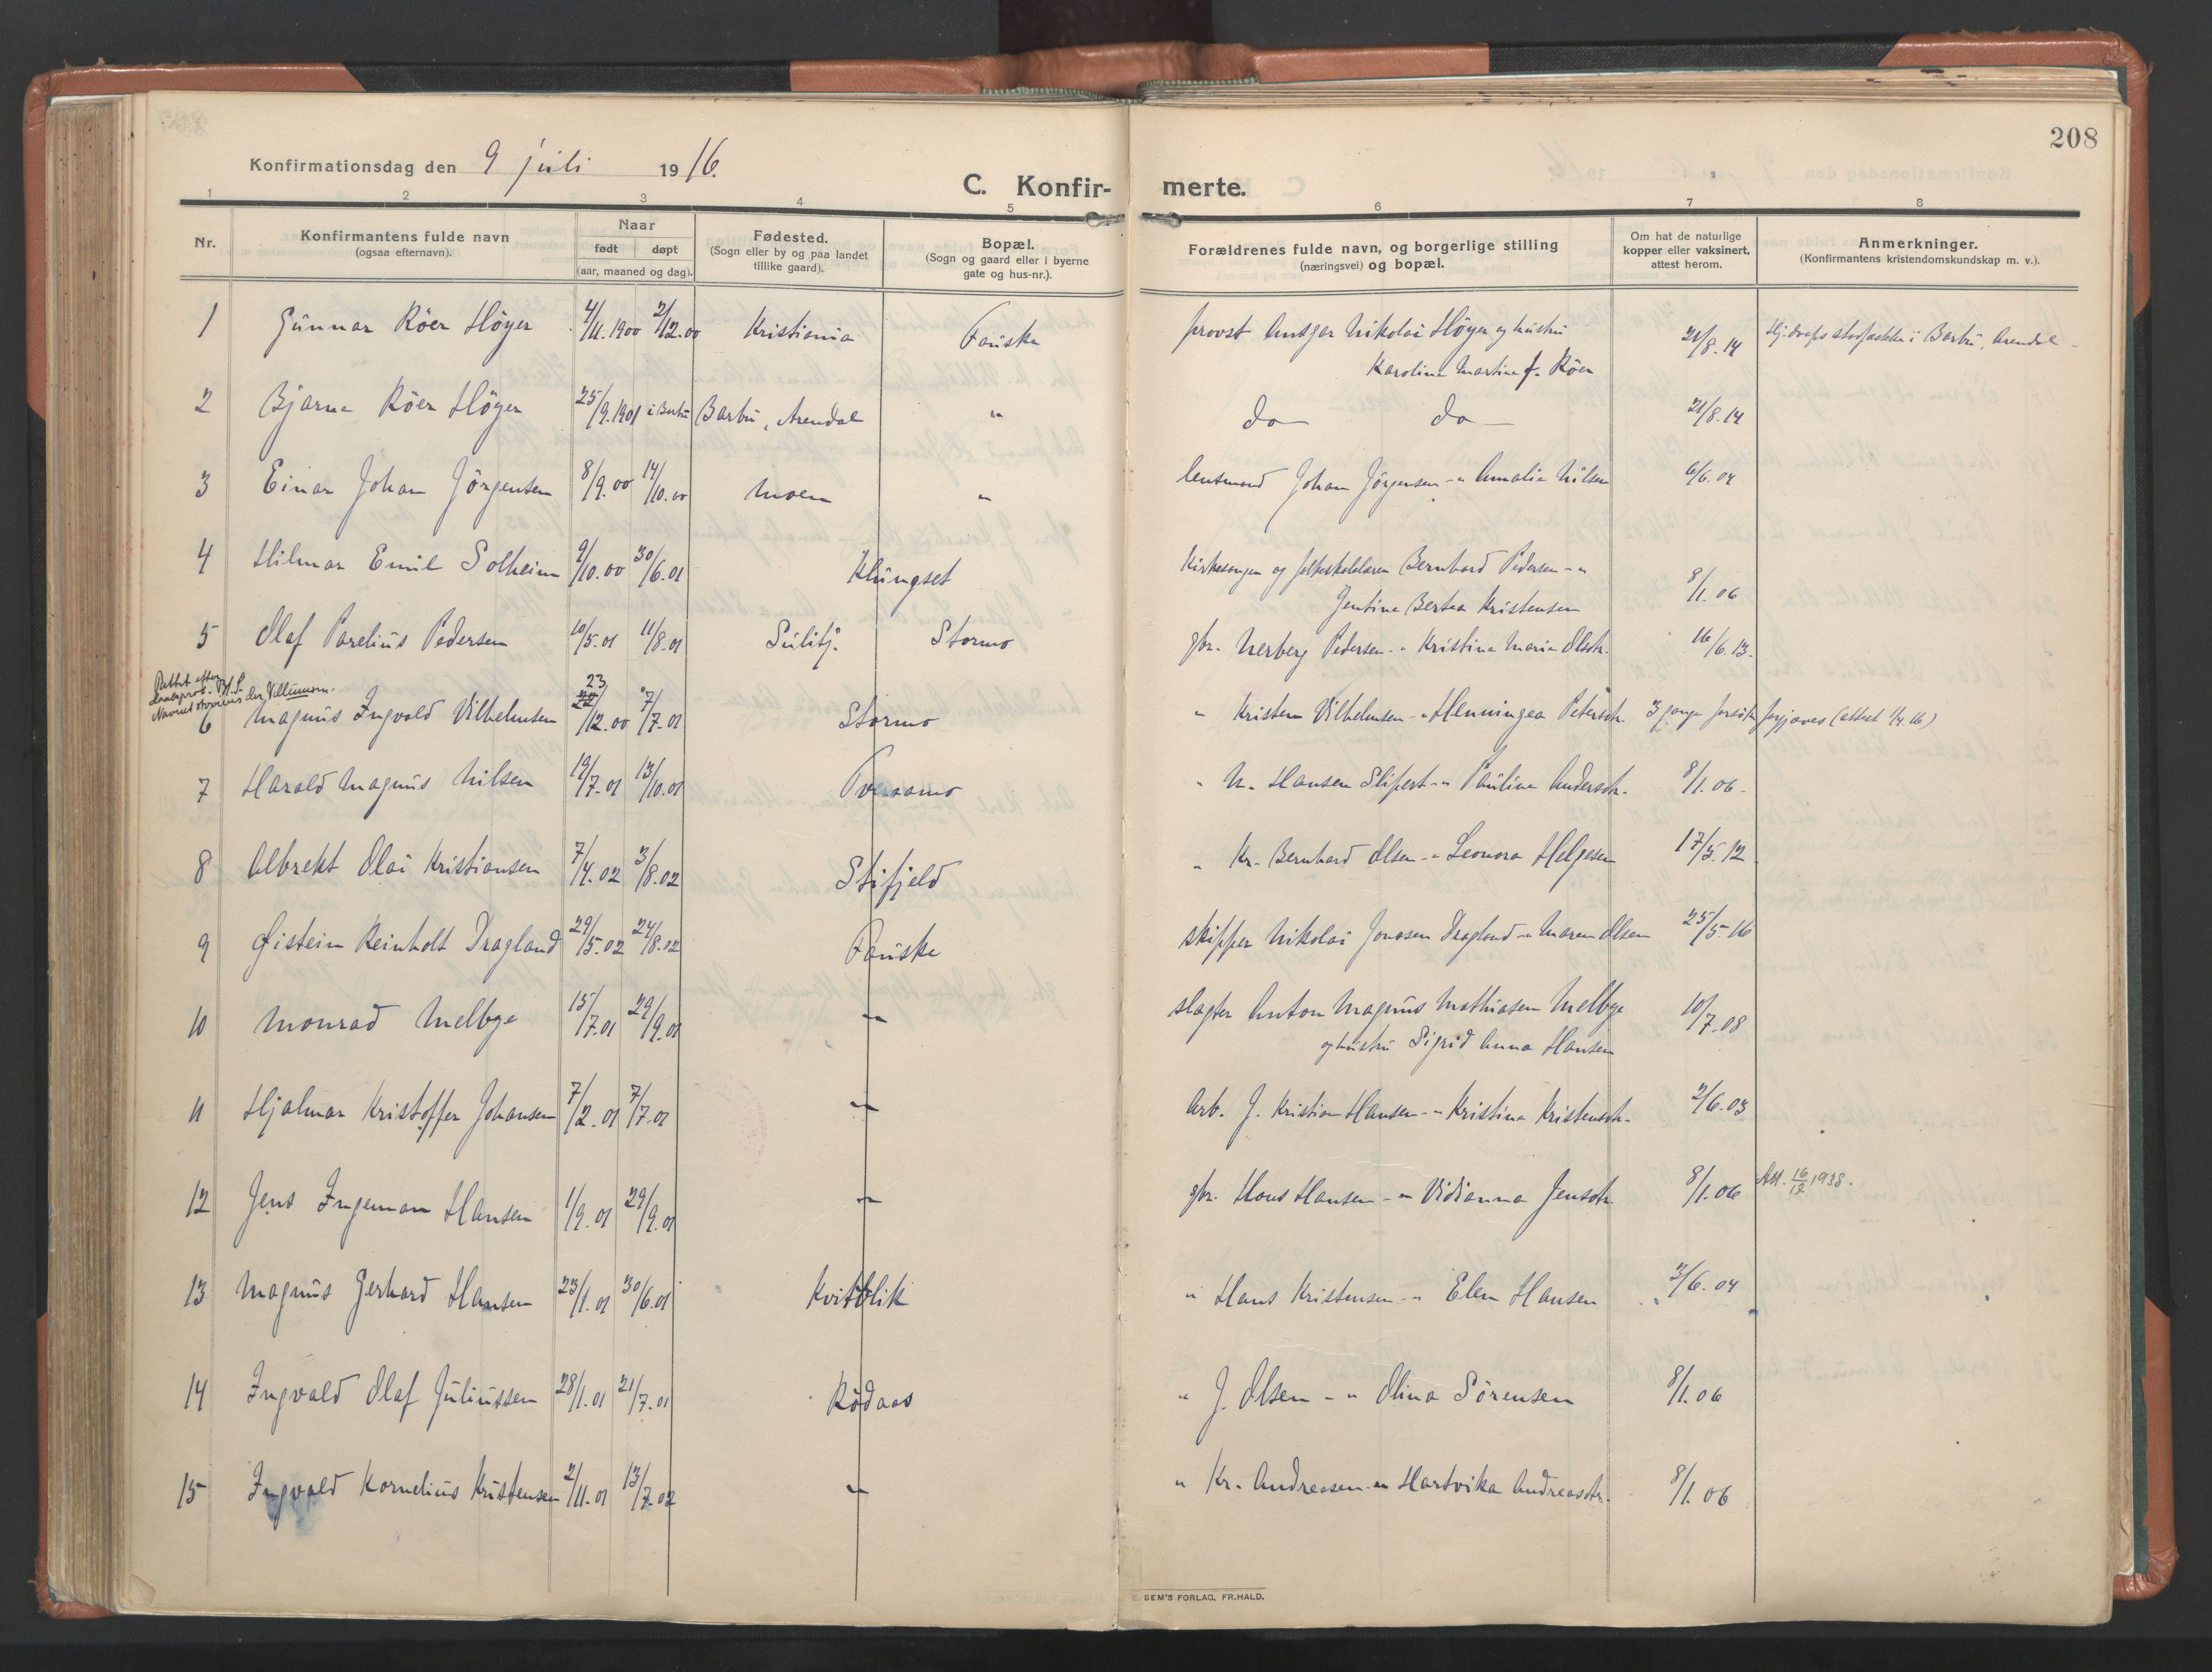 208
Konfirmationsdag den 9 juli 1916.
C. Konfir- merte.
1 2 3 4 5 6 7 8
Nr.
Konfirmantens fulde navn
(ogsaa efternavn).
Naar
født døpt
(aar, maaned og dag).
Fødested.
(Sogn eller by og paa landet
tillike gaard).
Bopæl.
(Sogn og gaard eller i byerne
gate og hus-nr.).
Forældrenes fulde navn, og borgerlige stilling
(næringsvei) og bopæl.
Om hat de naturlige
kopper eller vaksinert,
attest herom.
Anmerkninger.
(Konfirmantens kristendomskundskap m. v.).
1 Gunnar Röer Höyer 4/11.1900 2/12.00 Kristiania Fauske provst Ansgar Nikolai Höyer og hustru 21/8.14 Hj.døpt i Barbu, Arendal
Karoline Martine f. Röer
2 Bjarne Röer Höyer 25/9.1901 i Barbu Barbu, Arendal " do do 21/8.14
3 Einar Johan Jörgensen 8/9.00 14/10.00 Moen " lensmand Johan Jörgensen - " Amalie Nilsen 6/6.04
4 Hilmar Emil Solheim 9/10.00 30/6.01 Klungset Kirkesanger og folkeskolelærer Bernhard Pedersen - " 8/1.06
Jentine Bertea Kristensen
5 Olaf Parelius Pedersen 10/5.01 11/8.01 Sulitj. Stormo gbr. Nerberg Pedersen - " Kristine Marie Olsdtr. 16/6.13.
Rettet efter
daabsprot.
Navnet der Villumsen.
6 Magnus Ingvald Vilhelmsen 23 22/12.00 7/7.01 Stormo " Kristen Vilhelmsen - " Henningea Petersdtr. 3 gange forsökt forgjæves (attest 1/4.16)
7 Harald Magnus Nilsen 19/7.01 13/10.01 Tveraamo " N. Hansen Slipert - " Pauline Andersdtr. 8/1.06.
8 Albrekt Olai Kristiansen 7/4.02 3/8.02 Stifjeld " Kr. Bernhard Olsen - " Leonora Helgesen 17/5.12
9 Øistein Reinholt Dragland 29/5.02 24/8.02 Fauske skipper Nikolai Jonasen Dragland - " Maren Olsen 25/5.16
10 Monrad Melbye 15/7.01 29/9.01 " slagter Anton Magnus Mathiasen Melbye 10/7.08
og hustru Sigrid Anna Hansen
11 Hjalmar Kristoffer Johansen 7/2.01 7/7.01 " Arb. J. Kristian Hansen - " Kristine Kristensdtr. 2/6.03
12 Jens Ingeman Hansen 1/9.01 29/9.01 " gbr. Hans Hansen - " Vidianna Jensdtr 8/1.06 Att. 16/12 1938.
13 Magnus Gerhard Hansen 23/1.01 30/6.01 Kvitblik " Hans Kristensen - " Elen Hansen 3/6.04
14 Ingvald Olaf Juliussen 28/1.01 21/7.01 Rödaas " J. Olsen - " Olina Sörensen 8/1.06
15 Ingvald Kornelius Kristensen 2/11.01 13/7.02 " " Kr. Andreasen - " Hartvika Andreasdtr. 8/1.06
SEM'S FORLAG, FR.HALD.